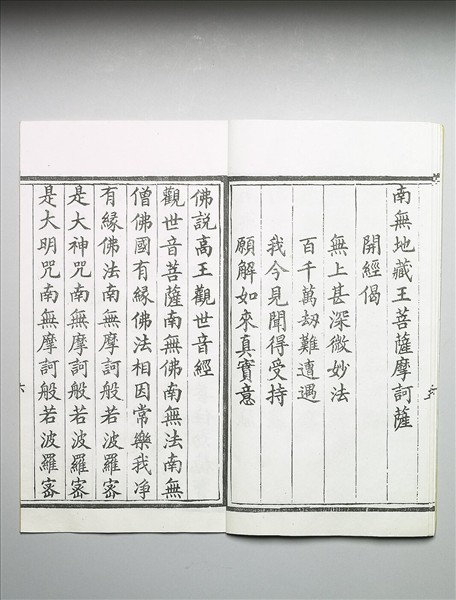 南無地藏王菩薩摩訶薩
開經偈
無上甚深微妙法
百千萬劫難遭遇
我今見聞得受持
願解如來真實意
佛説高王觀世音經
觀世音菩薩南無佛南無法南無
僧佛國有緣佛法相因常樂我净
有緣佛法南無摩訶般若波羅宻
是大神咒南無摩訶般若波羅宻
是大明咒南無摩訶般若波羅宻
六